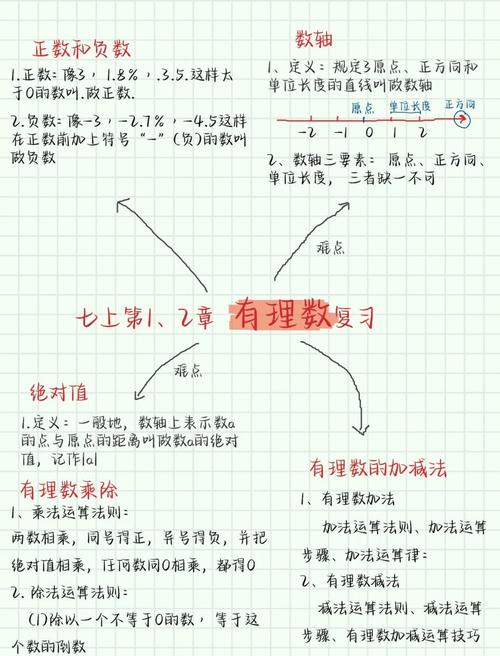 正数和负数
1.正数:像3,1.8%,.3.5.这样大
于0的数叫.做正数.
2.负数:像-3,-2.7%,-4.5这样
在正数前加上符号“-”(负)的数叫
做负数
数轴
1、定义:规定3原点、正方向和
单位长度的直线叫做数轴
原点 单位长度 正方向
-2 -1 0 1 2
2、数轴三要素:原点、正方向、
单位长度,三者缺一不可
难点
七上第1、2章 有理数复习
难点
绝对值
1.定义:一般地,数轴上表示数a
的点与原点的距离叫做数a的绝对
值,记作|a|
有理数乘除
1、乘法运算法则:
两数相乘,同号得正,异号得负,并把
绝对值相乘,任何数同0相乘,都得0
2.除法运算法则:
(1)除以一个不等于0的数,等于这
个数的倒数
有理数的加减法
1、有理数加法
加法运算法则、加法运算
步骤、加法运算律:
2、有理数减法
减法运算法则、减法运算
步骤、有理数加减运算技巧